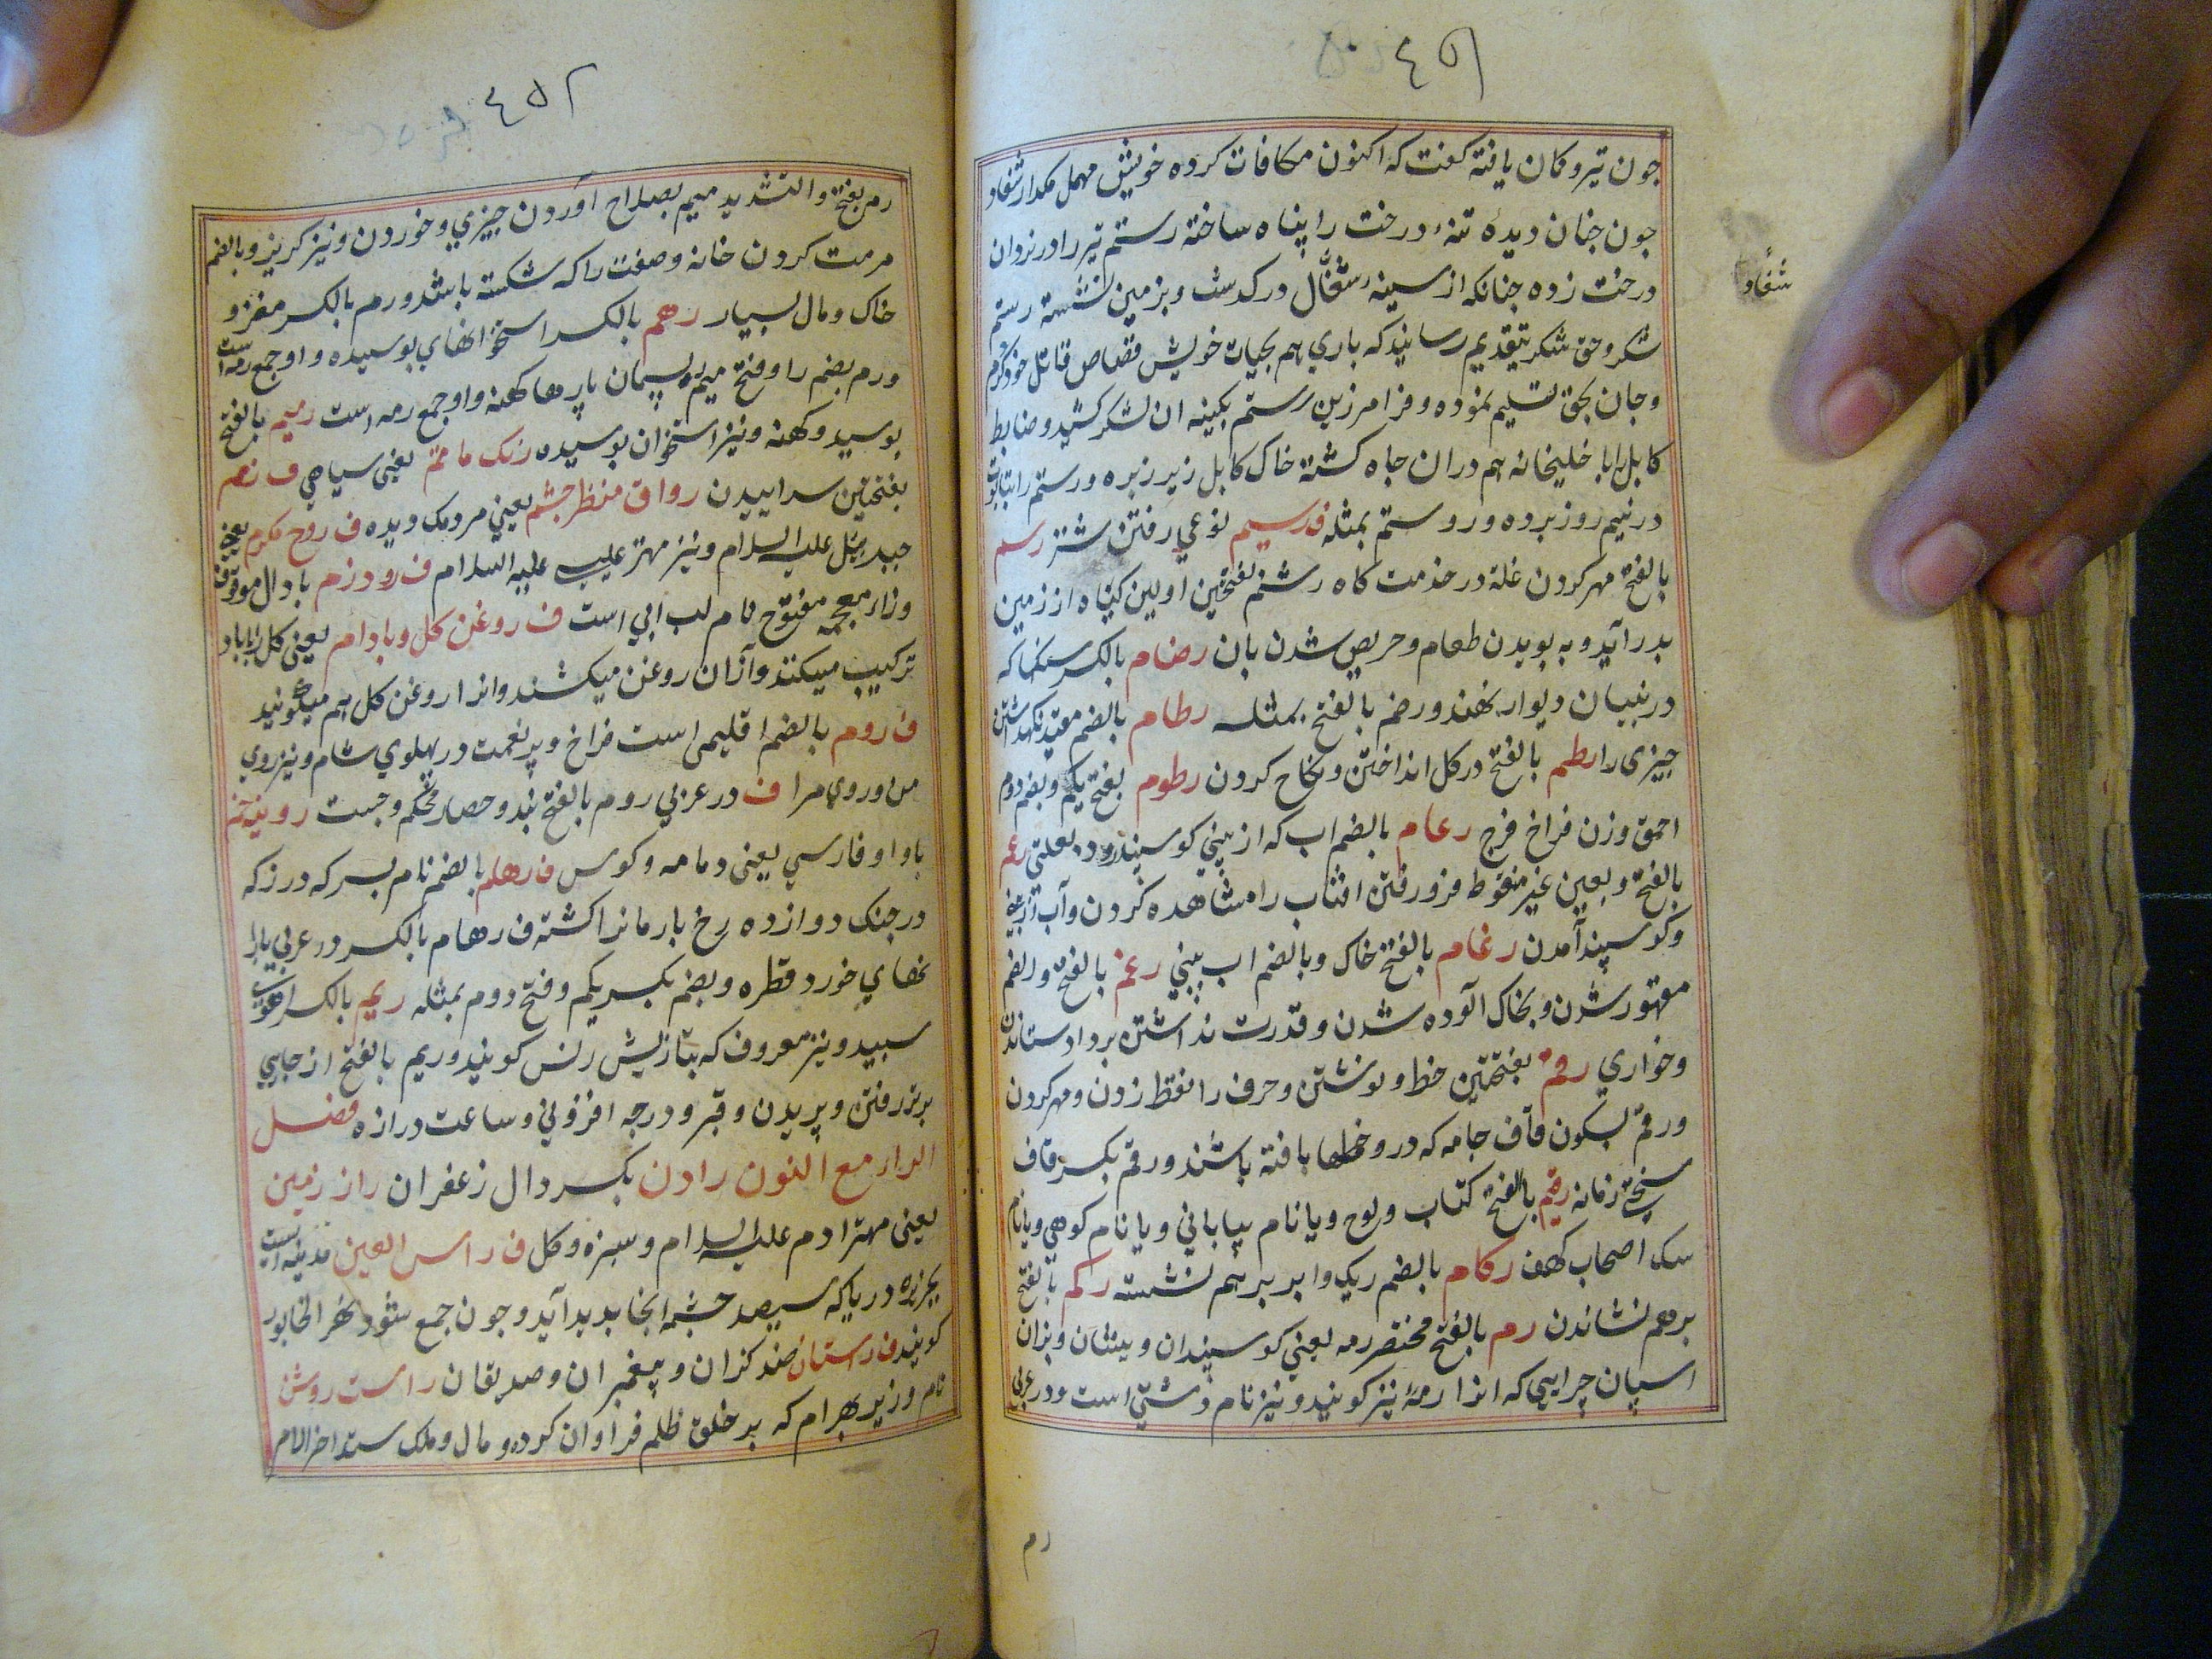 ٤٥١
جون تير و كمان يافته كفت كه اكنون مكافات كرده خويش مهمل مكدار شغاد
شغاد
جون جنان ديدهٔ تنهٔ درخت را پناه ساخته رستم تير را در نروان
درخت زده جنانكه از سينه شغال در كدشت و بزمين نشسته رستم
شكر و حق شكر بتقديم رسانيد كه باري هم بحيات خويش قصاص قاتل خود كردم
و جان بحق تسليم نموده و فرامرز بن رستم بكينه ان لشكر كشيد و ضابط
كابل را با خليخانه هم دران جاه كشته خاك كابل زير زبره و رستم را بتابوت
در نيم روز برده و روستم بمثله ف رسيم نوعي رفتن شتر رسم
بالفتح مهر كردن غلة در خدمت كاه رشم بفتحتين اولين كياه از زمين
بدر آيد و به بويدن طعام و حريص شدن بان رضام بالكسر سنكها كه
در بنيان ديوار نهند و رضم بالفتح بمثله رطام بالضم مقيد نكهداشتن
جيزي را رطم بالفتح در كل انداختن و نكاح كردن رطوم بفتح يكم و بضم دوم
احمق و زن فراخ فرج رعام بالضم اب كه از بيني كوسپند رود بعلتي رعم
بالفتح و بعين غير منقوط فرو رفتن افتاب را مشاهده كردن و آب از بيني
و كوسپند آمدن رغام بالفتح خاك و بالضم اب بيني رغم بالفتح و الضم
مقهور شدن و بخاك آلوده شدن و قدرت نداشتن برو داد ستاندن
و خواري رقم بفتحتين خط و نوشتن و حرف را نقط زدن و مهر كردن
و رقم بسكون قاف جامه كه درو خطها بافته باشند و رقم بكسر قاف
سختي زمانه رقيم بالفتح كتاب و لوح و يا نام بياباني و يا نام كوهي و يا نام
سك اصحاب كهف ركام بالضم ريك و ابر بر هم نشسته ركم بالفتح
برهم نشاندن رم بالفتح مختصر رمه يعني كوسپندان و ميشان و بزان
اسپان چرايي كه انرا رمهٔ نيز كويند و نيز نام دشتي است و در عربي
رم
٤٥٢
رم بفتح و التشديد ميم بصلاح آوردن جيزي و خوردن و نيز كريز و بالضم
مرمت كردن خانه و صفت را كه شكسته باشد و رم بالكسر مغز و
خاك و مال بسيار رهم بالكسر استخوانهاي بوسيده و او جمع رمه است
و رم بضم را و فتح ميم ريسپمان پارها كهنه و او جمع رمه است رميم بالفتح
بوسيده و كهنه و نيز استخوان بوسيده رنك ماتم يعني سياهي ف رنم
بفتحتين سراييدن رواق منظر جشم يعني مردمك ديده ف روح مكرم يعني
جبرئيل عليه السلام و نيز مهتر عيسى عليه السلام ف رودزم با دال موقوف
و زاء معجمه مفتوح نام لب ابي است ف روغن كل و بادام يعني كل را با باد
تركيب ميكنند و ازان روغن ميكشند و انرا روغن كل هم ميكويند
ف روم بالضم اقليمي است فراخ و پر نعمت در پهلوي شام و نيز روي
من و روي مرا ف در عربي روم بالفتح بند و حصار محكم و جست رويينه خم
با واو فارسي يعني دمامه و كوس ف رهام بالضم نام پسر كه درز كه
در جنك دوازده رخ بارمان را كشته ف رهام بالكسر در عربي بارا
نهاي خورد قطره و بضم بكسر يكم و فتح دوم بمثله ريم بالكسر اهوي
سپيد و نيز معروف كه بتازيش رنس كويند و ريم بالفتح از جايي
برتر رفتن و پريدن و قبر و درجه افزوني و ساعت دراز ه فصل
الراء مع النون رادن بكسر دال زعفران راز زمين
يعني مهتر ادم عليه السلام و سبزه و كل ف راس العين مدينه است
بجزيره درياكه سيصد جشمه انجا بديد آيد و جون جمع شود نهر الخابور
كويند ف راستان صندكران و پيغمبران و صديقان راست روشن
نام وزير بهرام كه بر خلق ظلم فراوان كرده و مال و ملك ستد اخر الامر